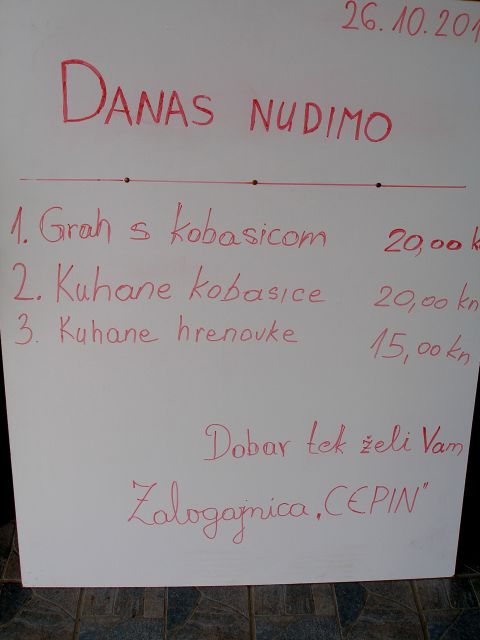 26.10.201
DANAS NUDIMO
1. Grah s kobasicom 20,00 k
2. Kuhane kobasice 20,00 kn
3. Kuhane hrenovke 15,00 kn
Dobar tek želi Vam
Zalogajnica "CEPIN"